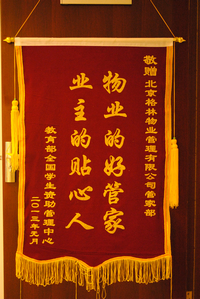 敬赠 北京格林物业管理有限公司管家部
物业的好管家
业主的贴心人
教育部全国学生资助管理中心
二〇一三年元月